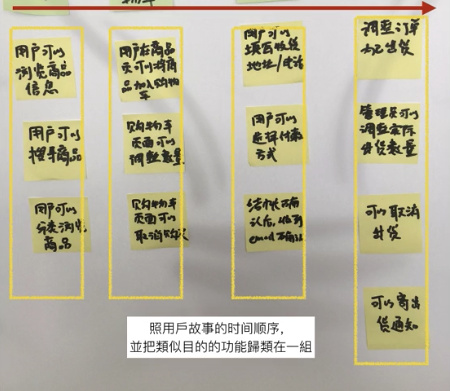 用户可以
浏览商品
信息
用户可以
搜寻商品
用户可以
分类浏览
商品
用户在商品
页可以将商
品加入购物
车
购物车
页面可以
调整数量
购物车
页面可以
取消购买
用户可以
填写收货
地址/电话
用户可以
选择付款
方式
结帐
认后,收到
email
调整订单
为已出货
管理员可以
调整实际
出货数量
可以取消
出货
可以寄出
货通知
照用戶故事的时间顺序,
並把類似目的的功能歸類在一組